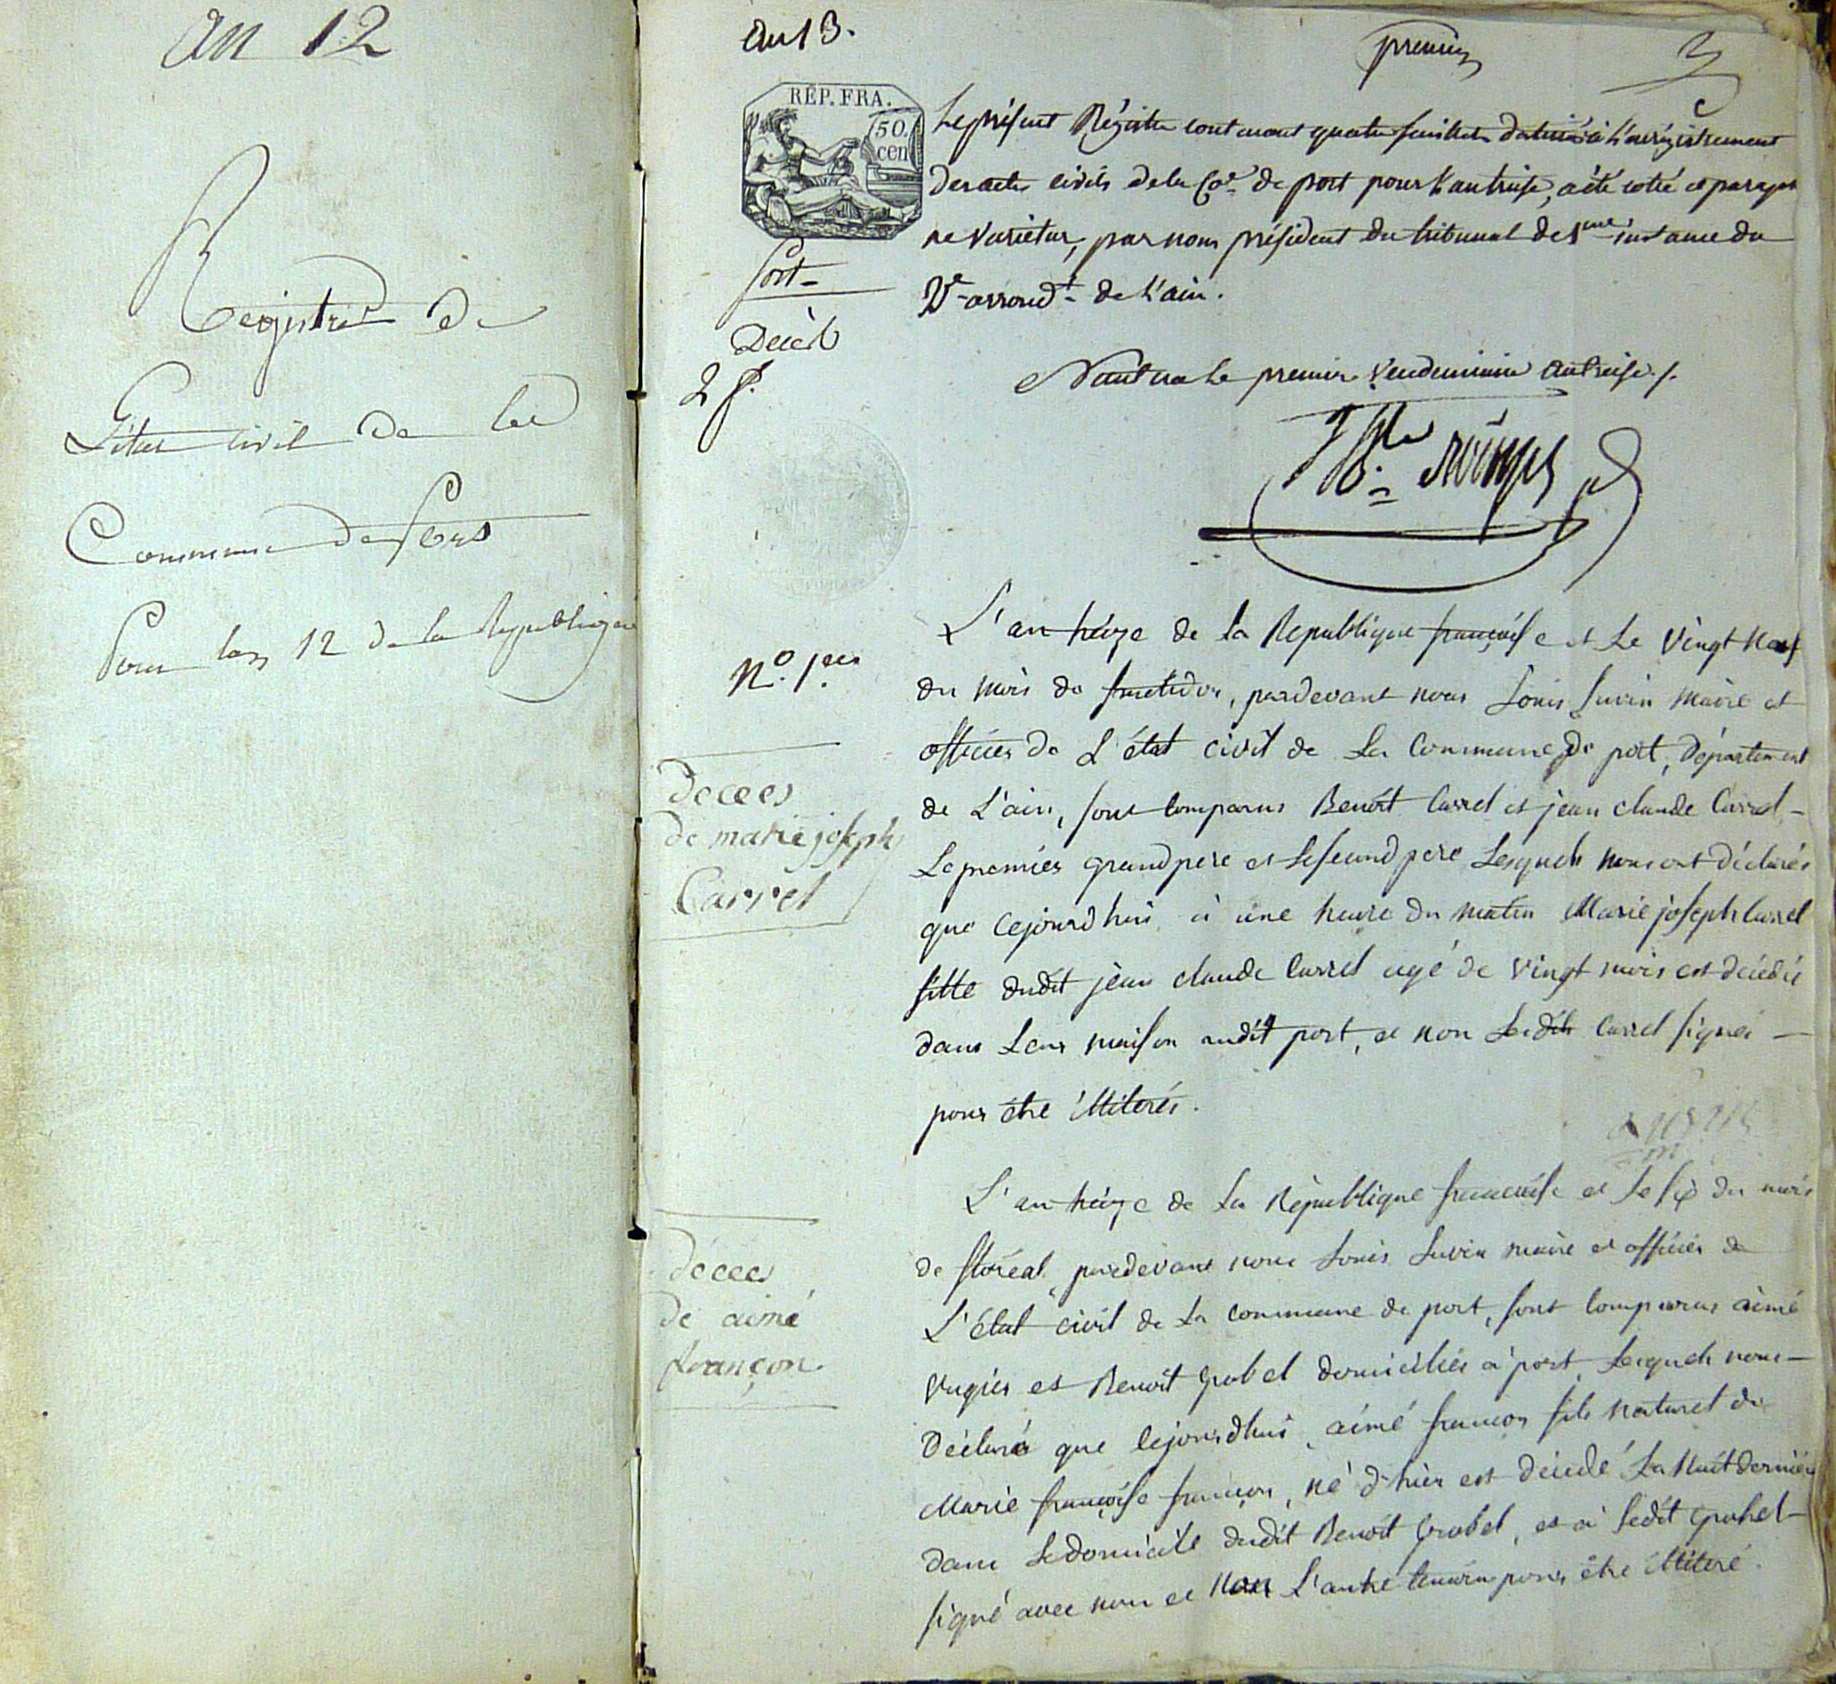 an 12
Registre de
L'état civil de la
Commune de Port
Pour lan 12 de la Republique
an 13.
premier
REP. FRA.
50.
cen
Port
Décès
2 f.
Le présent Régistre contenant quatre feuillets destiné à l'enrégistrement
des actes civils de la Cne de port pour l'an treise, a été cotté et paraphé
ne varietur, par nous président du tribunal de 1ere instance du
2e arrondt de l'ain.
Nantua le premier vendemiaire an treise ./.
N.º 1.er
décès
de marie joseph
Carrel
L'an treize de la Republique françoise et Le vingt neuf
du mois de fructidor, pardevant nous Louis Juvin maire et
officier de L'état civil de La Commune de port, département
de L'ain, sont Comparus Benoît Carrel et jean claude Carrel
Le premier grand pere et Le second pere Lesquels nous ont déclarés
que cejourdhui à une heure du matin Marie joseph Carrel
fille dudit jean claude Carrel agé de vingt mois est décédée
dans Leur maison audit port, et non Lesdits Carrel signés
pour être illiterés.
décès
de aimé
françon
L'an treize de La République françoise et Le six du mois
de floréal, pardevant nous Louis Juvin maire et officier de
L'état civil de La commune de port, sont Comparus aimé
vugier et Benoît Grobel domiciliés à port, Lesquels nous
déclaré que cejourdhui aimé françon fils naturel de
Marie françoise françon, né d'hier est décédé La Nuit dernière
dans Le domicile dudit Benoît Grobel, et a Ledit Grobel
signé avec nous et non L'autre temoin pour être illiteré.